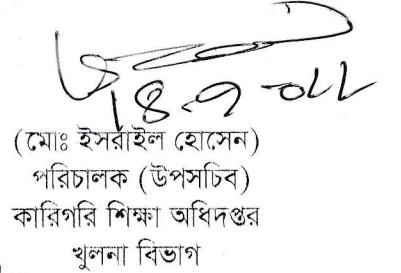 (মোঃ ইসরাইল হোসেন)
পরিচালক (উপসচিব)
কারিগরি শিক্ষা অধিদপ্তর
খুলনা বিভাগ